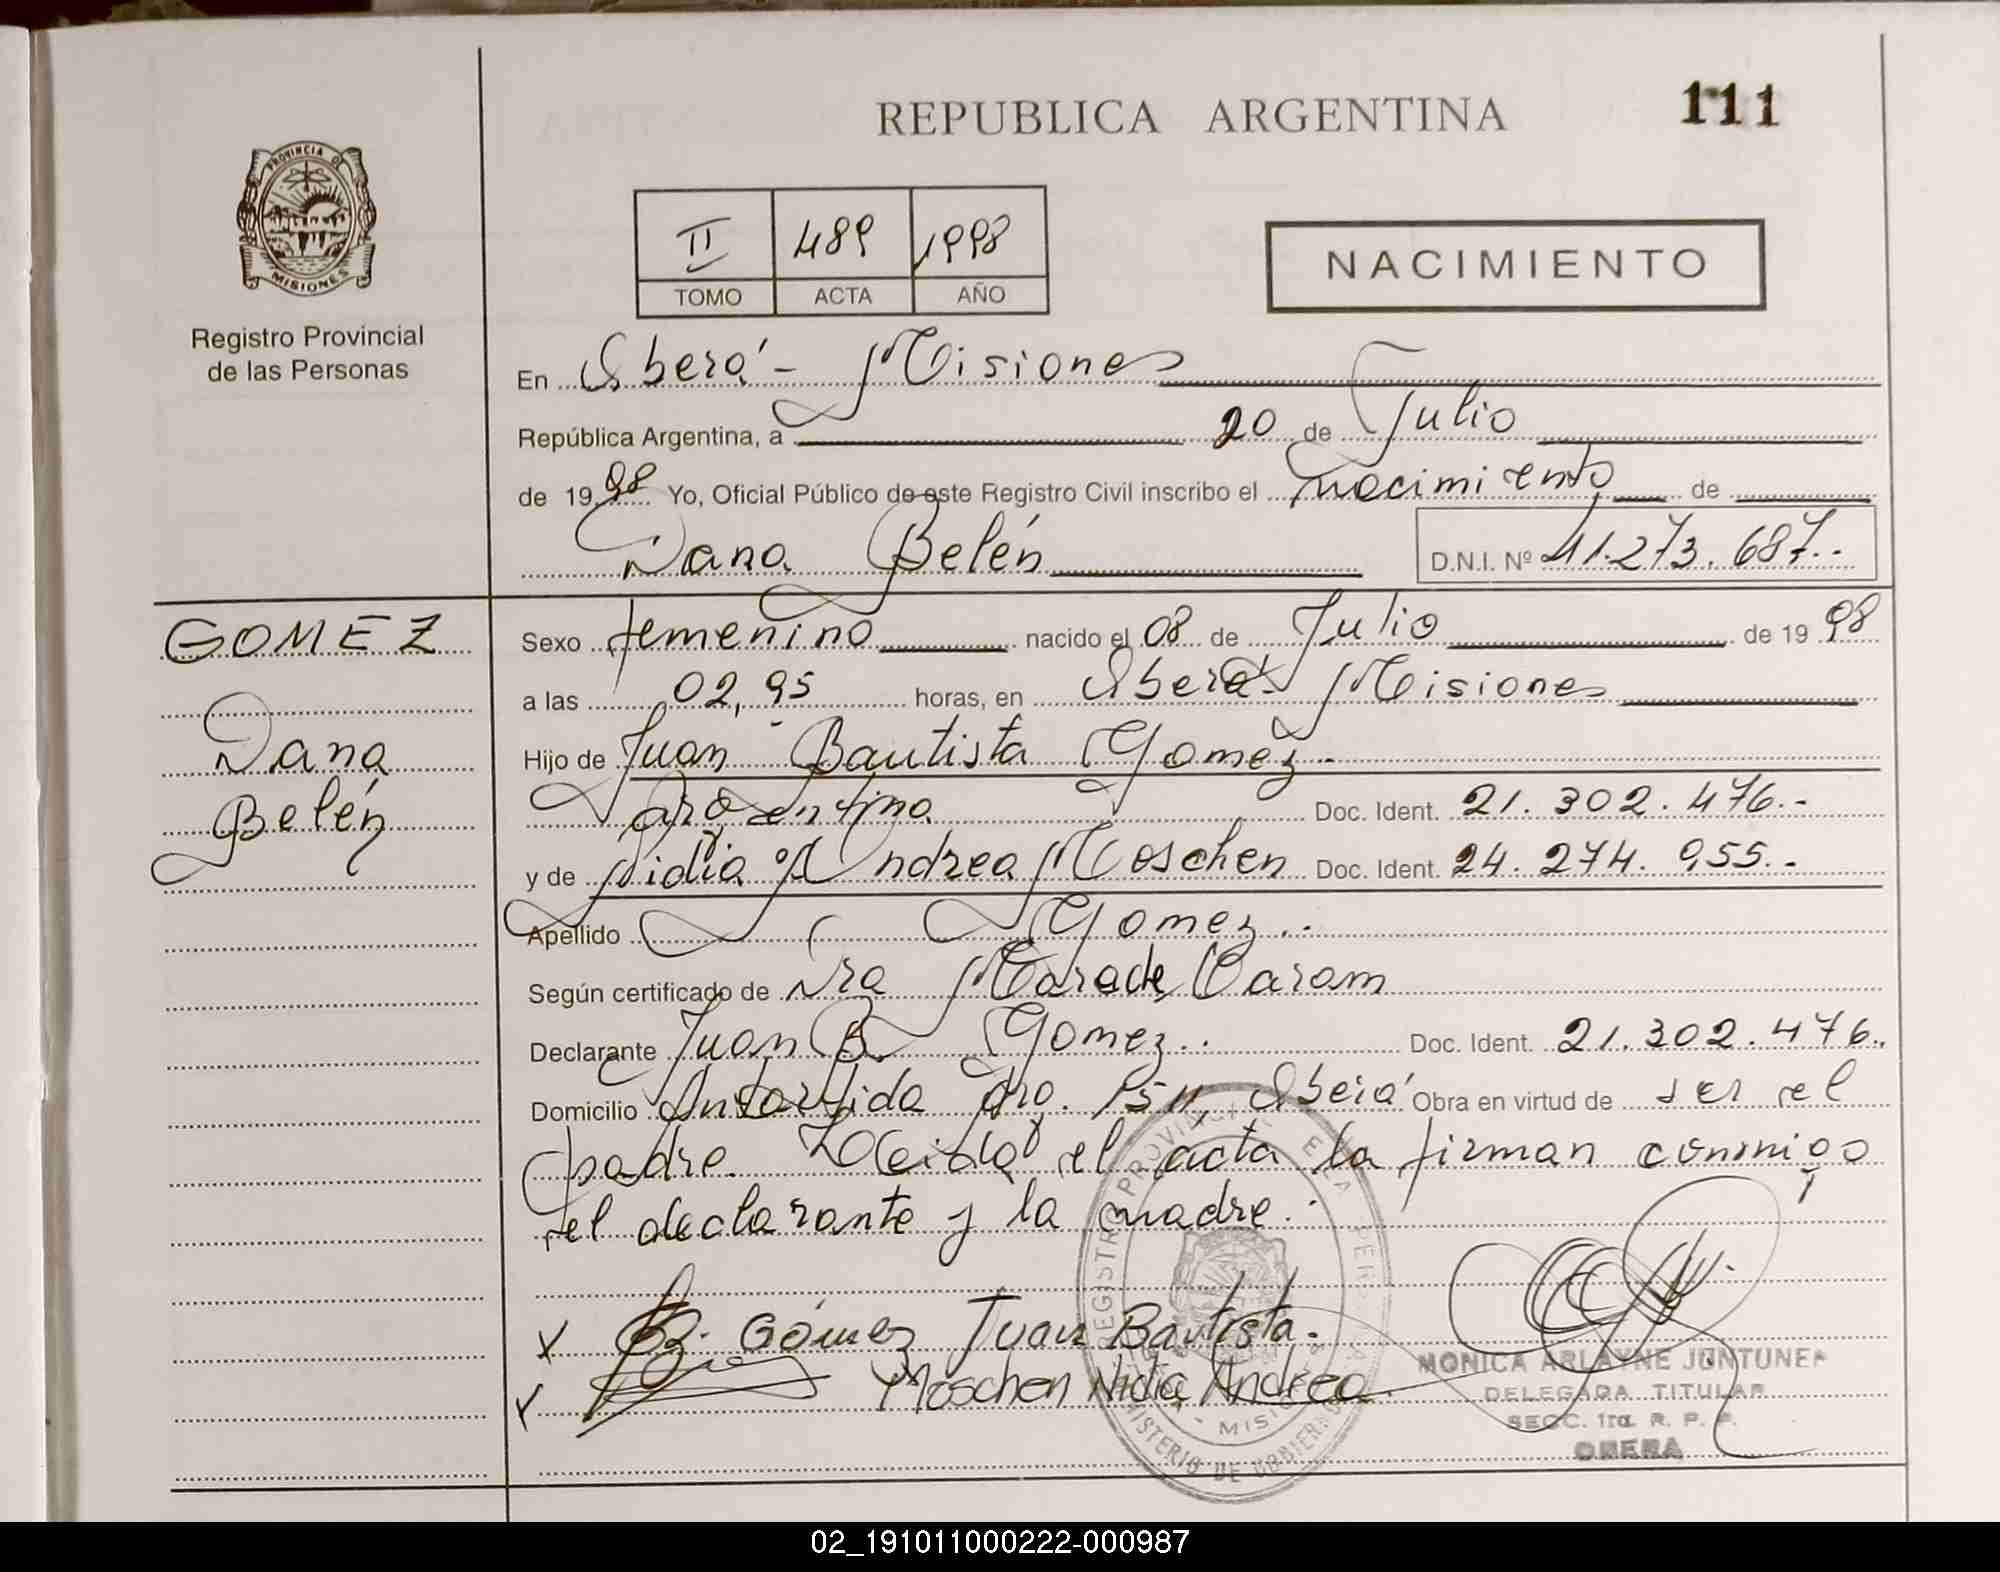 REPUBLICA ARGENTINA
111
PROVINCIA DE
MISIONES
Registro Provincial
de las Personas
II 489 1998
TOMO ACTA AÑO
NACIMIENTO
En Oberá - Misiones
República Argentina, a 20 de Julio
de 1998 Yo, Oficial Público de este Registro Civil inscribo el nacimiento de
Dana Belén D.N.I. Nº 41.273.687.-
GOMEZ
Dana
Belén
Sexo femenino nacido el 08 de Julio de 1998
a las 02,95 horas, en Oberá - Misiones
Hijo de Juan Bautista Gomez.-
Argentina Doc. Ident. 21.302.476.-
y de Nidia Andrea Moschen Doc. Ident. 24.274.955.-
Apellido Gomez..
Según certificado de Dra Caram
Declarante Juan B. Gomez.. Doc. Ident. 21.302.476..
Domicilio Antartida Arg. Oberá Obra en virtud de ser el
padre. Leida el acta la firman conmigo
el declarante y la madre.
x Gómez Juan Bautista.
x Moschen Nidia Andrea
REGISTRO PROVINCIAL DE LAS PERSONAS
MINISTERIO DE GOBIERNO
- MISIONES -
MONICA ARLAYNE JUNTUNEN
DELEGADA TITULAR
SECC. 1ra. R. P. P.
OBERA
02_191011000222-000987